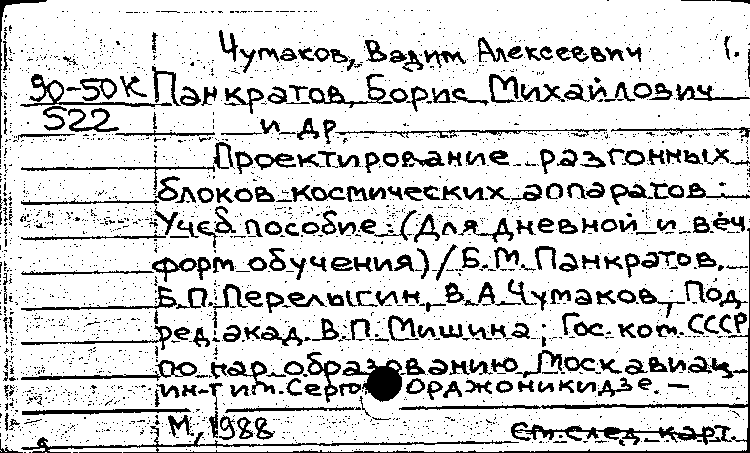 Чумаков, Вадим Алексеевич 1.
90-50К Панкратов, Борис Михайлович
522 и др.
Проектирование разгонных
блоков космических аппаратов:
Учеб. пособие: (Для дневной и веч.
форм обучения) / Б.М. Панкратов,
Б.П. Перелыгин, В.А. Чумаков; Под
ред. акад. В.П. Мишина; Гос. ком. СССР
по нар. образованию, Моск авиац.
ин-т им. Серго Орджоникидзе. —
М, 1988 См. след. карт.